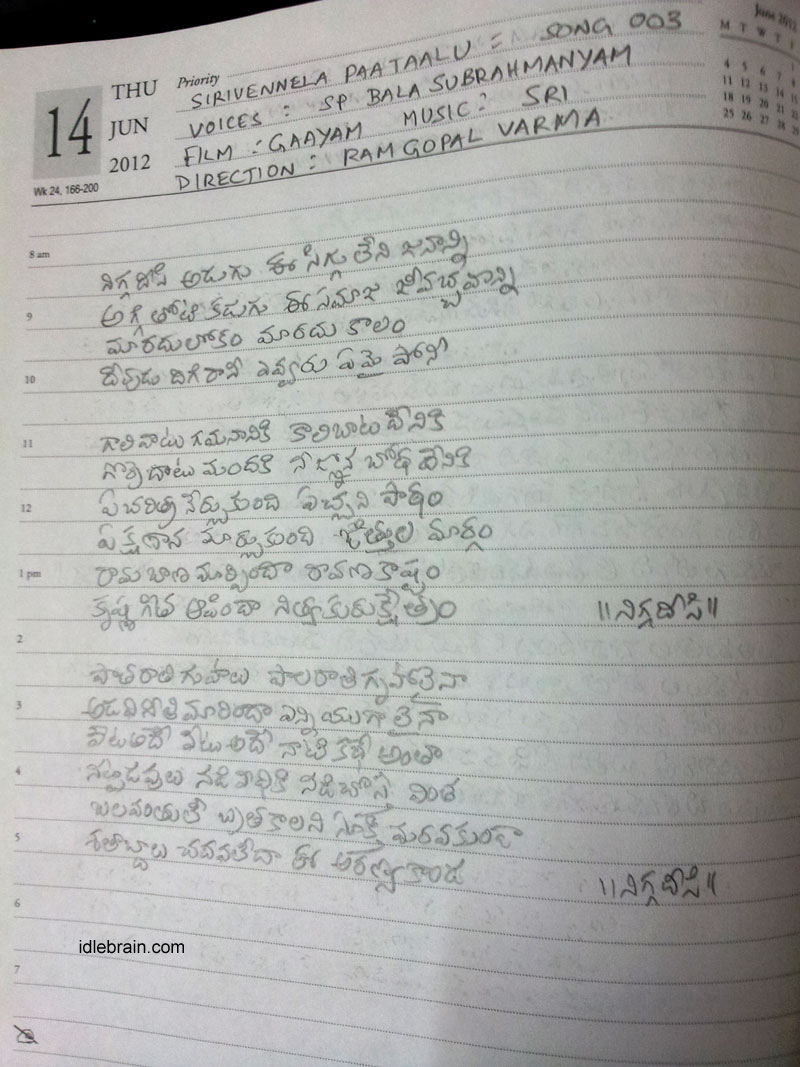 June 2012
M T W T F
4 5 6 7 8
11 12 13 14 15
18 19 20 21 22
25 26 27 28 29
14 THU JUN 2012
Wk 24, 166-200
Priority
SIRIVENNELA PAATAALU = SONG 003
VOICES : SP BALA SUBRAHMANYAM
FILM : GAAYAM MUSIC : SRI
DIRECTION : RAM GOPAL VARMA
8 am
నిగ్గదీసి అడుగు ఈ సిగ్గు లేని జనాన్ని
9
అగ్గి తోటి కడుగు ఈ సమాజ జీవచ్ఛవాన్ని
మారదులోకం మారదు కాలం
10
దేవుడు దిగిరానీ ఎవ్వరు ఏమై పోనీ
11
గాలివాటు గమనానికి కాలిబాట దేనికి
గొర్రెదాటు మందకి నీ జ్ఞానబోధ దేనికి
12
ఏ చరిత్ర నేర్చుకుంది పచ్చని పాఠం
ఏ క్షణాన మార్చుకుంది జిత్తుల మార్గం
1 pm
రామబాణమార్పిందా రావణకాష్ఠం
కృష్ణ గీత ఆపిందా నిత్యకురుక్షేత్రం ॥నిగ్గదీసి॥
2
పాతరాతి గుహలు పాలరాతి గృహాలైనా
3
అడవినీతి మారిందా ఎన్నియుగాలైనా
వేటఅదే వేటు అదే నాటి కథే అంతా
4
నట్టడవులు నడివీధికి నడిచొస్తే వింత
బలవంతులే బ్రతకాలని సూక్తి మరవకుండా
5
శతాబ్దాలు చదవలేదా ఈ అరణ్యకాండ ॥నిగ్గదీసి॥
6
idlebrain.com
7